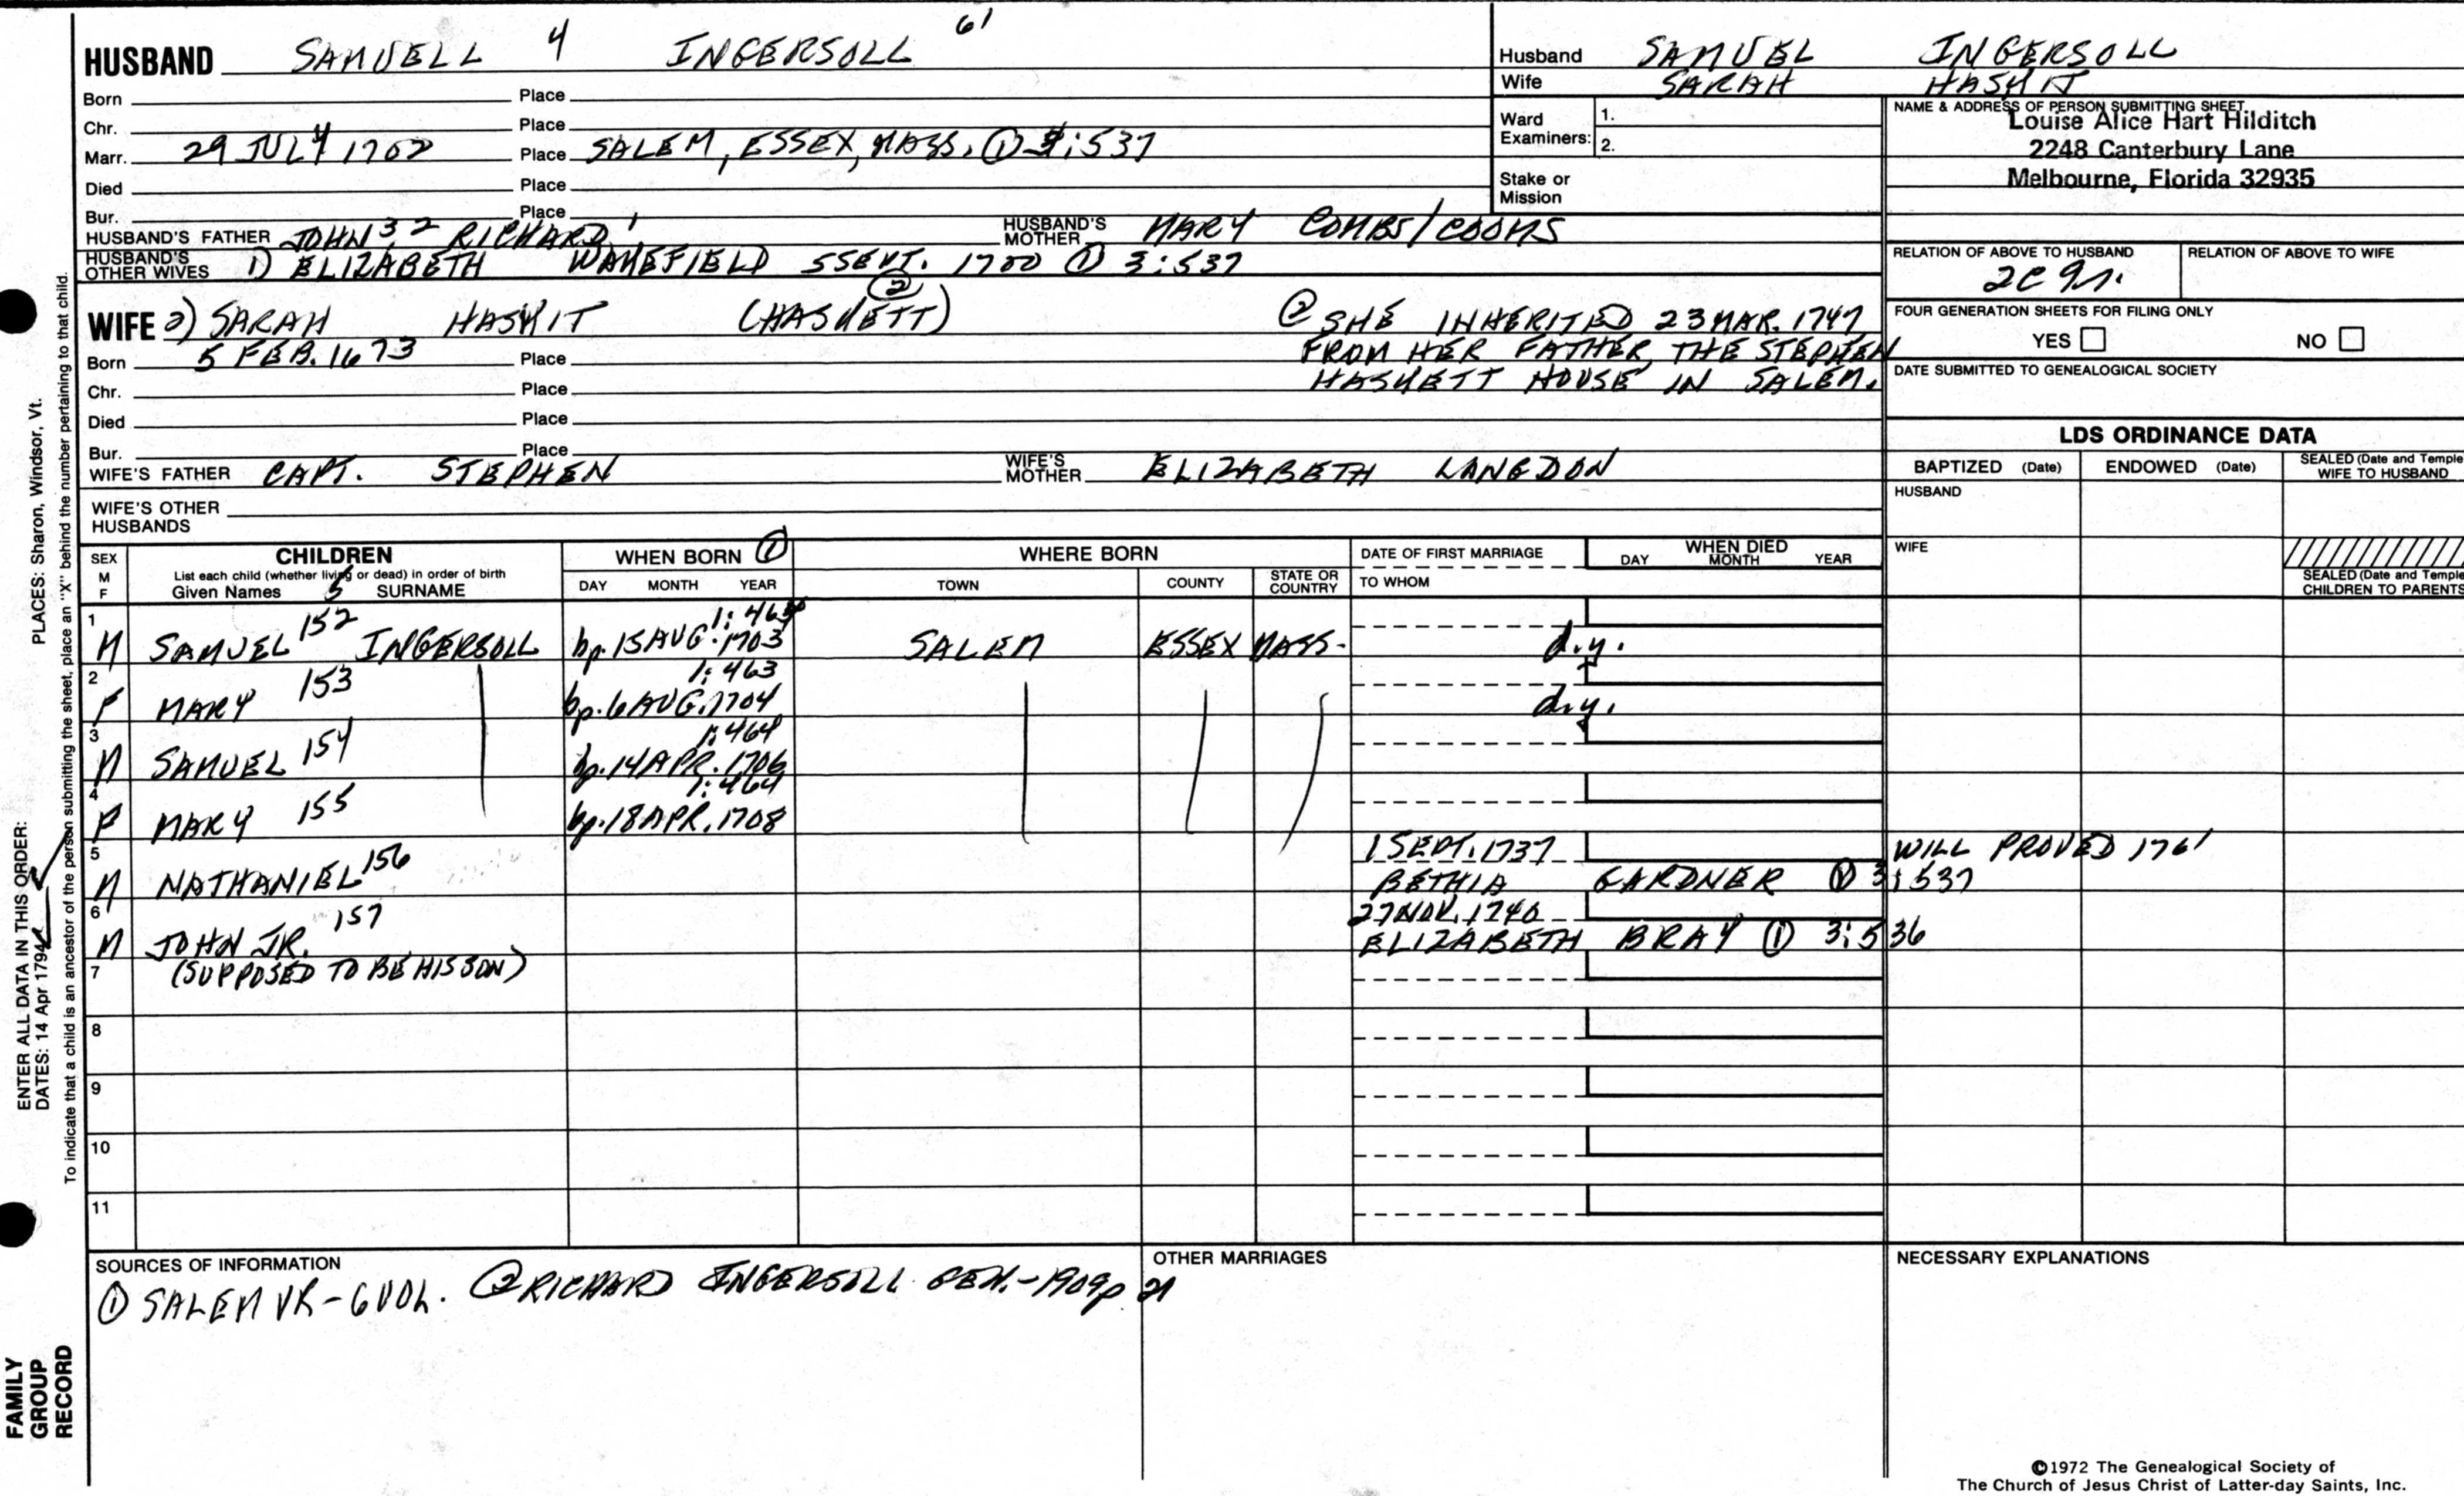 HUSBAND SAMUELL 4 INGERSOLL 61
Born Place
Chr. Place
Marr. 29 JULY 1702 Place SALEM, ESSEX, MASS. ① 3:537
Died Place
Bur. Place
HUSBAND'S FATHER JOHN 3, 2 RICHARD 1 HUSBAND'S MOTHER MARY COMBS/COOMS
HUSBAND'S OTHER WIVES 1) ELIZABETH WAKEFIELD 5 SEPT. 1700 ① 3:537
WIFE 2) SARAH HASKIT (HASKETT) ②
② SHE INHERITED 23 MAR. 1747
FROM HER FATHER, THE STEPHEN
HASKETT HOUSE IN SALEM.
Born 5 FEB. 1673 Place
Chr. Place
Died Place
Bur. Place
WIFE'S FATHER CAPT. STEPHEN WIFE'S MOTHER ELIZABETH LANGDON
WIFE'S OTHER HUSBANDS
Husband SAMUEL INGERSOLL
Wife SARAH HASKIT
Ward Examiners: 1.
2.
Stake or Mission
NAME & ADDRESS OF PERSON SUBMITTING SHEET
Louise Alice Hart Hilditch
2248 Canterbury Lane
Melbourne, Florida 32935
RELATION OF ABOVE TO HUSBAND RELATION OF ABOVE TO WIFE
FOUR GENERATION SHEETS FOR FILING ONLY
YES NO
DATE SUBMITTED TO GENEALOGICAL SOCIETY
LDS ORDINANCE DATA
BAPTIZED (Date) ENDOWED (Date) SEALED (Date and Temple) WIFE TO HUSBAND
HUSBAND
WIFE
SEALED (Date and Temple) CHILDREN TO PARENTS
SEX M F
CHILDREN
List each child (whether living or dead) in order of birth
Given Names 5 SURNAME
WHEN BORN ①
DAY MONTH YEAR
WHERE BORN
TOWN COUNTY STATE OR COUNTRY
DATE OF FIRST MARRIAGE
TO WHOM
WHEN DIED
DAY MONTH YEAR
1 M SAMUEL 152 INGERSOLL bp. 15 AUG. 1703 1:463 SALEM ESSEX MASS. d.y.
2 F MARY 153 bp. 6 AUG. 1704 1:463 d.y.
3 M SAMUEL 154 bp. 14 APR. 1706 1:464
4 F MARY 155 bp. 18 APR. 1708 1:464
5 M NATHANIEL 156 1 SEPT. 1737 WILL PROVED 1761
BETHIA GARDNER ① 3:537
6 M JOHN JR. 157 27 NOV. 1740
ELIZABETH BRAY ① 3:536
7 (SUPPOSED TO BE HIS SON)
8
9
10
11
SOURCES OF INFORMATION
① SALEM VR - 6 VOL. ② RICHARD INGERSOLL GEN. - 1909 p 21
OTHER MARRIAGES
NECESSARY EXPLANATIONS
©1972 The Genealogical Society of
The Church of Jesus Christ of Latter-day Saints, Inc.
ENTER ALL DATA IN THIS ORDER:
DATES: 14 Apr 1794
PLACES: Sharon, Windsor, Vt.
To indicate that a child is an ancestor of the person submitting the sheet, place an "X" behind the number pertaining to that child.
FAMILY
GROUP
RECORD